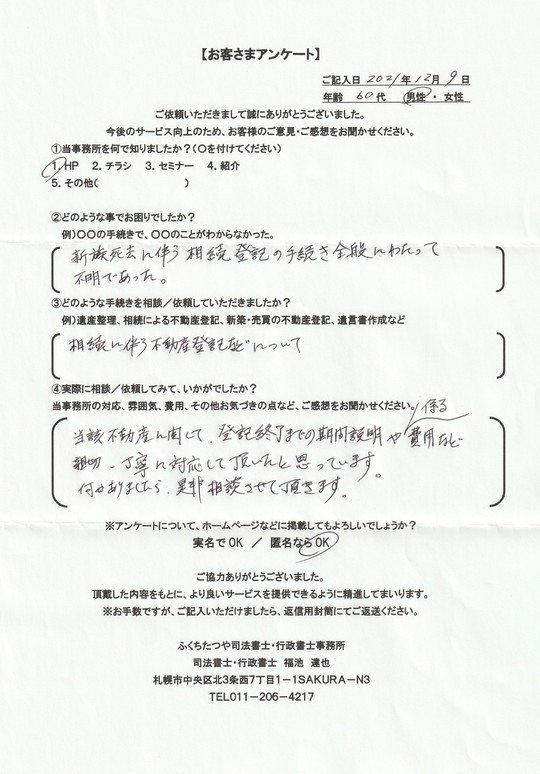 【お客さまアンケート】
ご記入日 2021年 12月 9日
年齢 60代 男性・女性
ご依頼いただきまして誠にありがとうございました。
今後のサービス向上のため、お客様のご意見・ご感想をお聞かせください。
①当事務所を何で知りましたか？(〇を付けてください)
1. HP 2. チラシ 3. セミナー 4. 紹介
5. その他( )
②どのような事でお困りでしたか？
例)〇〇の手続きで、〇〇のことがわからなかった。
親族死去に伴う相続登記の手続き全般にわたって
不明であった。
③どのような手続きを相談／依頼していただきましたか？
例)遺産整理、相続による不動産登記、新築・売買の不動産登記、遺言書作成など
相続に伴う不動産登記などについて
④実際に相談／依頼してみて、いかがでしたか？
当事務所の対応、雰囲気、費用、その他お気づきの点など、ご感想をお聞かせください。
係る
当該不動産に関して、登記終了までの期間説明や費用など
親切、丁寧に対応して頂いたと思っています。
何かありましたら、是非相談させて頂きます。
※アンケートについて、ホームページなどに掲載してもよろしいでしょうか？
実名でOK ／ 匿名ならOK
ご協力ありがとうございました。
頂戴した内容をもとに、より良いサービスを提供できるように精進してまいります。
※お手数ですが、ご記入いただけましたら、返信用封筒にてご返送ください。
ふくちたつや司法書士・行政書士事務所
司法書士・行政書士 福池 達也
札幌市中央区北3条西7丁目1－1SAKURA－N3
TEL011－206－4217